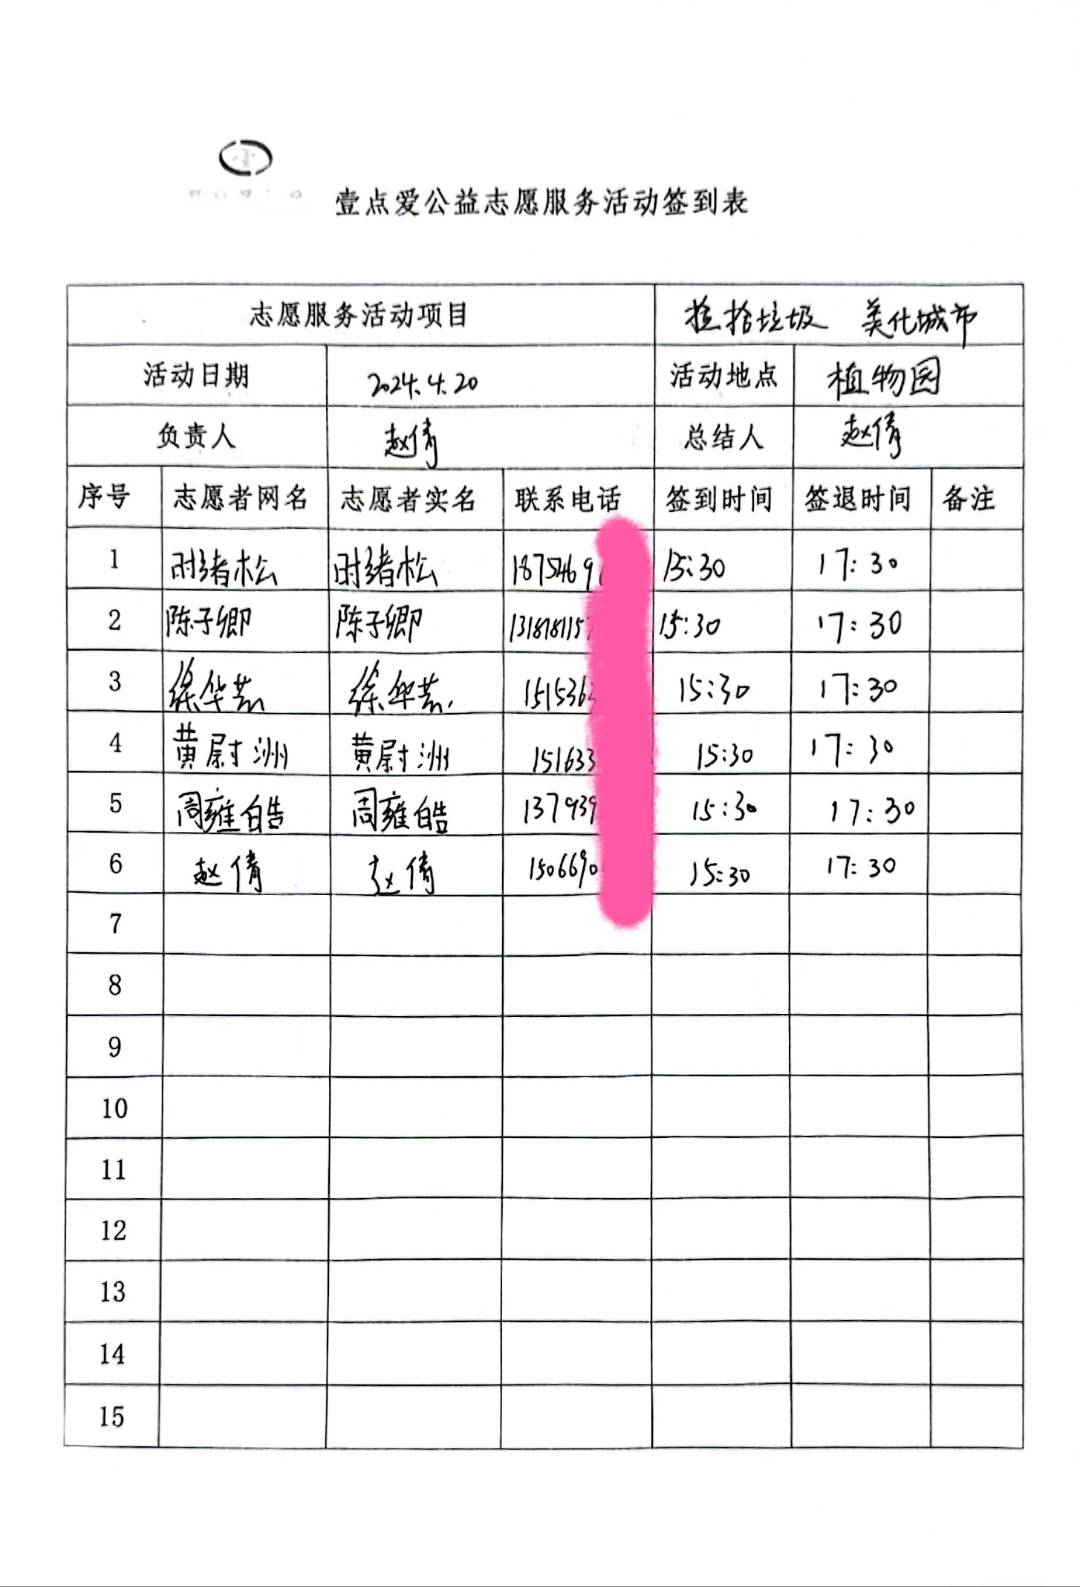 壹点爱公益志愿服务活动签到表
志愿服务活动项目 捡拾垃圾 美化城市
活动日期 2024.4.20 活动地点 植物园
负责人 赵倩 总结人 赵倩
序号 志愿者网名 志愿者实名 联系电话 签到时间 签退时间 备注
1 时绪松 时绪松 1875469 15:30 17:30
2 陈子卿 陈子卿 131818115 15:30 17:30
3 徐华 徐华 151536 15:30 17:30
4 黄尉洲 黄尉洲 151633 15:30 17:30
5 周雍皓 周雍皓 137939 15:30 17:30
6 赵倩 赵倩 1506690 15:30 17:30
7
8
9
10
11
12
13
14
15